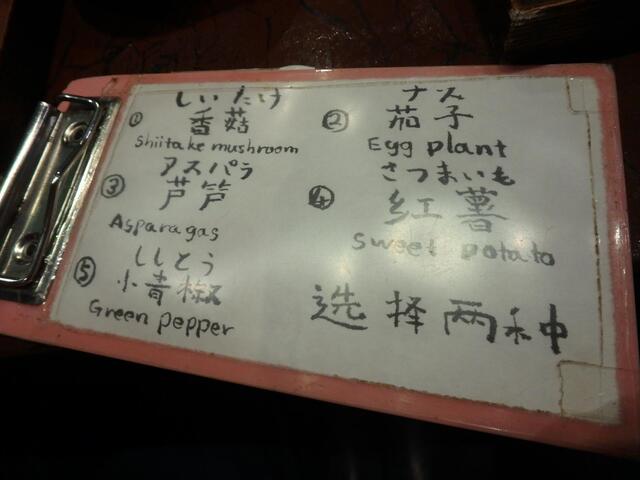 ①
しいたけ
香菇
Shiitake mushroom
②
ナス
茄子
Egg plant
③
アスパラ
芦笋
Asparagas
④
さつまいも
红薯
Sweet potato
⑤
ししとう
小青椒
Green pepper
选择两种